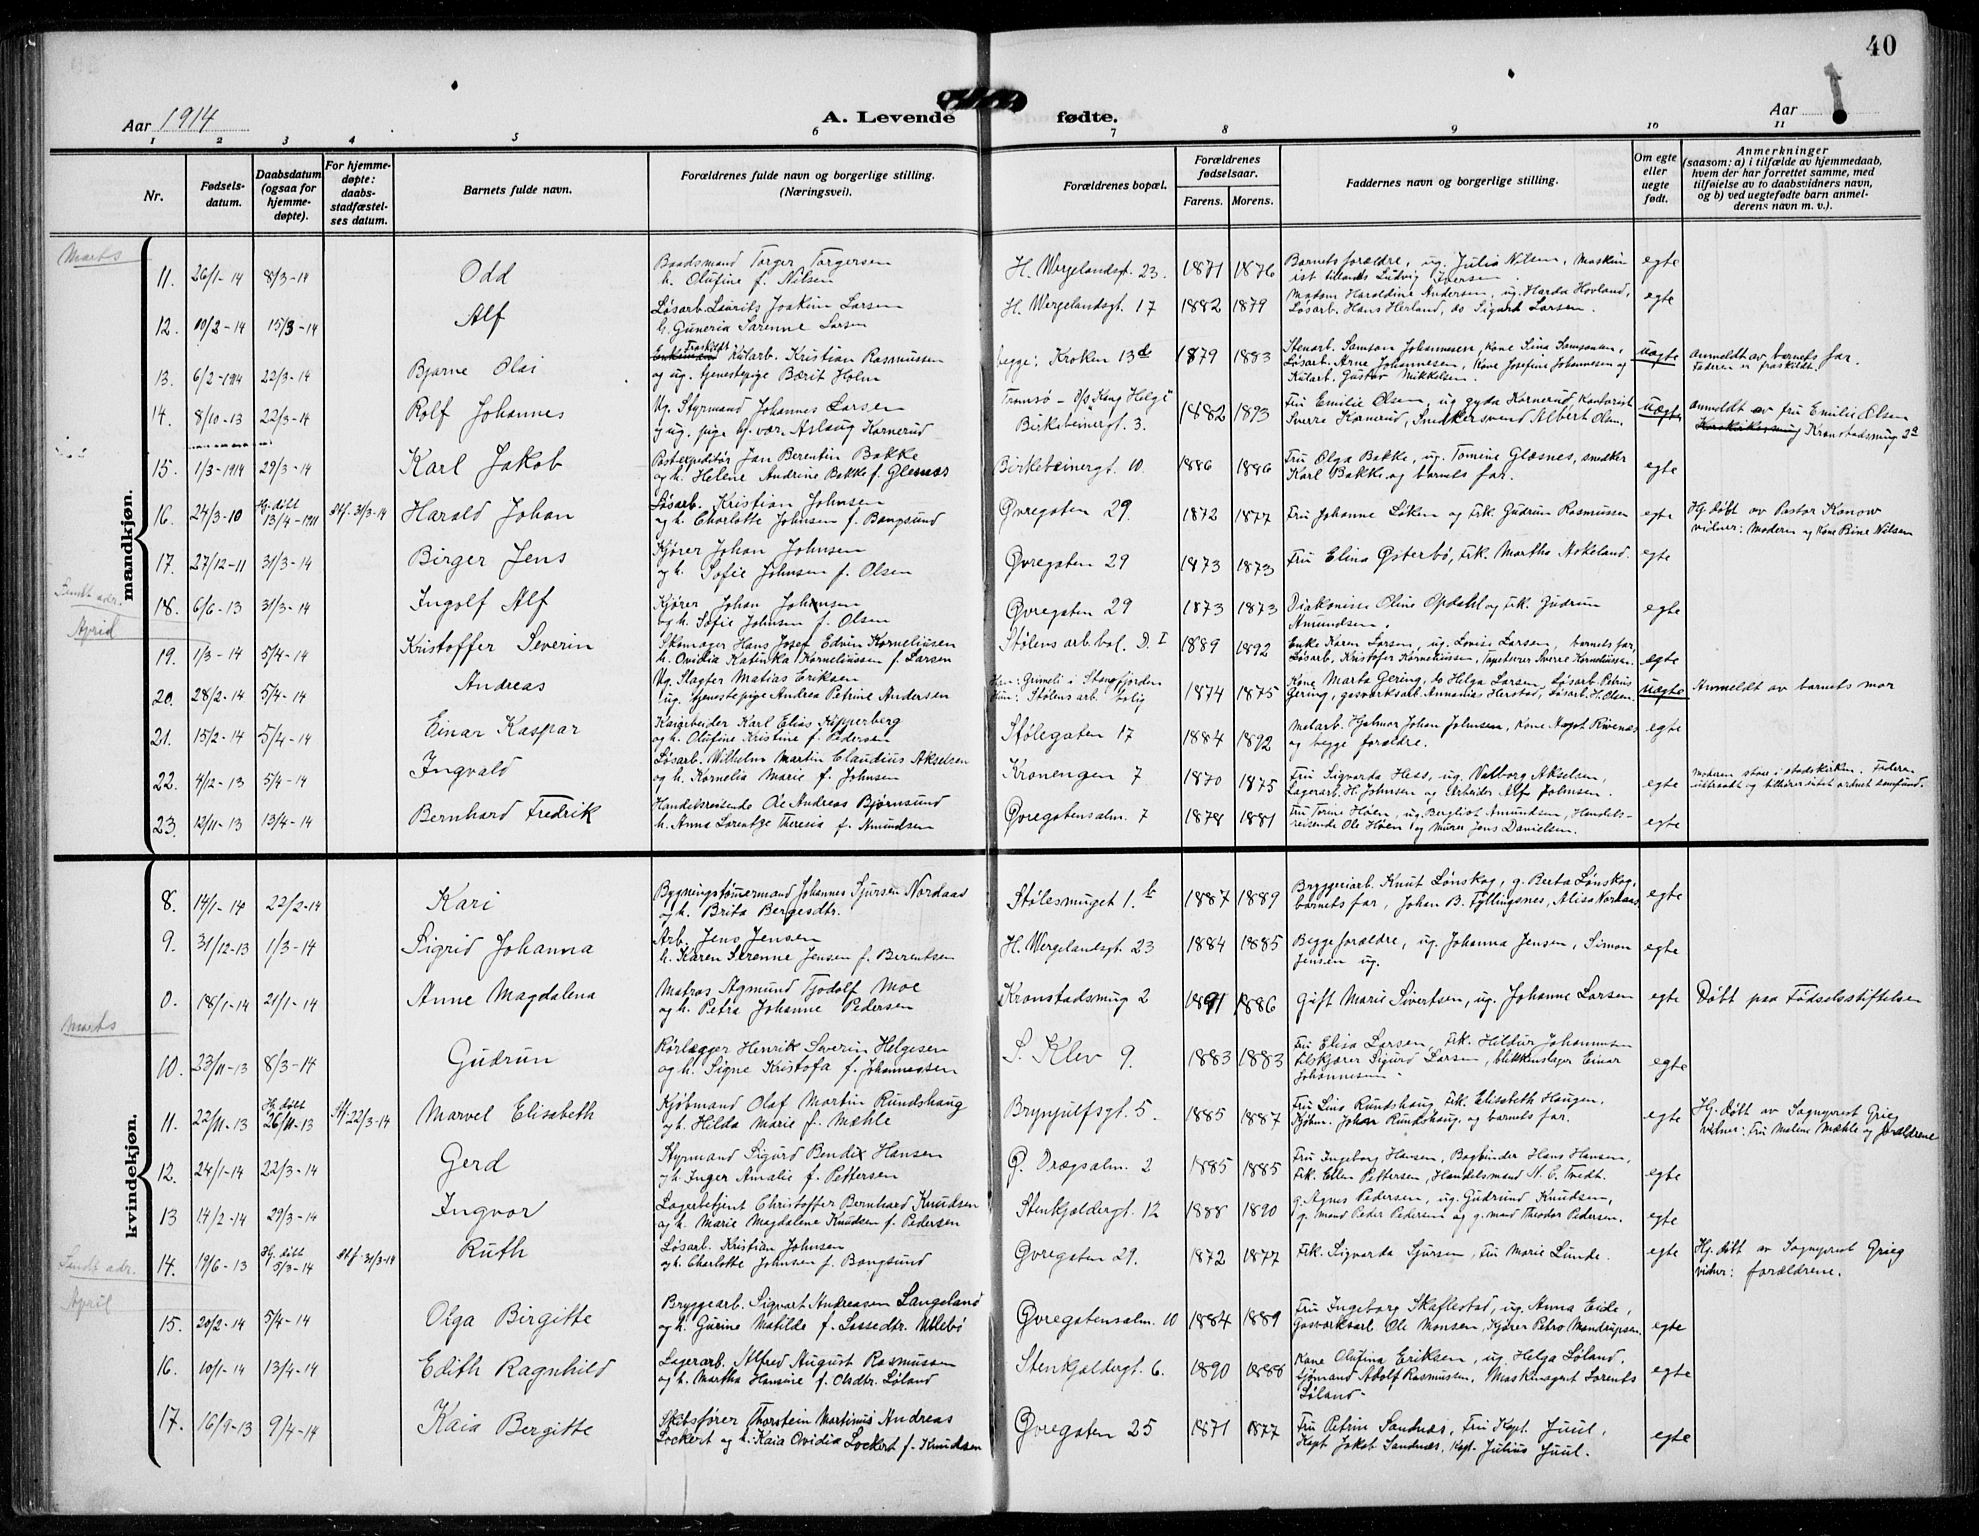 40
Aar 1914
A. Levende fødte.
Aar
1 2 3 4 5 6 7 8 9 10 11
Nr.
Fødsels-datum.
Daabsdatum (ogsaa for hjemme-døpte).
For hjemme-døpte: daabs-stadfæstel-ses datum.
Barnets fulde navn.
Forældrenes fulde navn og borgerlige stilling. (Næringsvei).
Forældrenes bopæl.
Forældrenes fødselsaar.
Farens. Morens.
Faddernes navn og borgerlige stilling.
Om egte eller uegte født.
Anmerkninger (saasom: a) i tilfælde av hjemmedaab, hvem der har forrettet samme, med tilføielse av to daabsvidners navn, og b) ved uegtefødte barn anmel-derens navn m. v.).
Marts
mandkjøn.
11. 26/1-14 8/3-14 Odd
Baadsmand Torger Torgersen
h. Olufine f. Nilsen
H. Wergelandsgt. 23. 1871 1876
Barnets forældre, ug. Julia Nilsen, Maskin
ist tillands Ludvig Iversen
egte
12. 10/2-14 15/3-14 Alf
Løsarb. Laurits Joakim Larsen
h. Guneria Sarenne Larsen
H. Wergelandsgt. 17 1882 1879
Madam Haraldine Andersen, ug. Harda Hovland,
Løsarb. Hans Herland, do Sigurd Larsen.
egte
13. 6/2-1914 22/3-14 Bjarne Olai
Fraskildt Kularb. Kristian Rasmussen
og ug. tjenestepige Bærit Holm
begge: Kroken 13 de 1879 1883
Stenarb. Samson Johannesen, Kone Lina Samsonsen,
Løsarb. Arne Johannesen, Kone Josefine Johannesen og
Kularb. Gustav Mikkelsen.
uegte
Anmeldt av barnets far.
Faderen er fraskildt.
14. 8/10-13 22/3-14 Rolf Johannes
Ug. Styrmand Johannes Larsen
og ug. pige Aslaug Kornerud
Tromsø - D/S Kong Helge
Birkebeinergt. 3. 1882 1893
Fru Emilie Olsen, ug Gyda Kornerud, Kontorist
Sverre Kornerud, Snedkersvend Albert Olsen.
uegte
Anmeldt av Fru Emilie Olsen
Kronstadsmug 2a
15. 1/3-1914 29/3-14 Karl Jakob
Postexpeditør Jan Berentin Bakke
og h. Helene Andrine Bakke f. Glesnes
Birkebeinergt. 10. 1886 1886
Fru Olga Bakke, ug. Tomine Glæsnes, snedker
Karl Bakke og barnets far.
egte
16. 24/3-10 Hj. døbt 13/4-1911 Stf. 31/3-14 Harald Johan
Løsarb. Kristian Johnsen
og h. Charlotte Johnsen f. Bangsund
Øvregaten 29. 1872 1877
Fru Johanne Løken og Frk. Gudrun Rasmussen
egte
Hj. døbt av Pastor Konow
vidner: Moderen og Kone Bine Nilsen
17. 27/12-11 31/3-14 Birger Jens
Kjører Johan Johnsen
og h. Sofie Johnsen f. Olsen
Øvregaten 29 1873 1873
Fru Elina Østerbø, Frk. Martha Nokeland.
egte
Sendt adr.
18. 6/6-13 31/3-14 Ingolf Alf
Kjører Johan Johnsen
og h. Sofie Johnsen f. Olsen
Øvregaten 29 1873 1873
Diakonisse Oline Opdahl og Frk. Gudrun
Amundsen.
egte
April
19. 1/3-14 5/4-14 Kristoffer Severin
Skomager Hans Josef Edvin Korneliussen
h. Ovidia Katinka Korneliussen f. Larsen
Stølens arb. bol. D. I 1889 1892
Enke Karen Larsen, ug. Lovise Larsen, barnets far,
Løsarb. Kristofer Korneliussen, Tapetserer Sverre Korneliussen.
egte
20. 28/2-14 5/4-14 Andreas
Ug. Slagter Matias Eriksen
ug. tjenestepige Andrea Petrine Andersen
Han: Grimeli i Stangfjorden
Hun: Stølens arb. bolig 1874 1875
Kone Marta Gering, do Helga Larsen, Løsarb. Petrus
Gering, gasverksarb. Annanias Herstad, Løsarb. H. Olsen.
uegte
Anmeldt av barnets mor
21. 15/2-14 5/4-14 Einar Kaspar
Kaiarbeider Karl Elias Kipperberg
og h. Olufine Kristine f. Pedersen
Stølegaten 17 1884 1892
Malarb. Hjalmar Johan Johnsen, Kone Magot Rivenes
og begge forældre.
egte
22. 4/12-13 5/4-14 Ingvald
Løsarb. Wilhelm Martin Claudius Akselsen
og h. Kornelia Marie f. Johnsen
Kronengen 7 1870 1875
Fru Sigvarda Hess, ug. Valborg Akselsen,
Lagerarb. H. Johnsen og Arbeider Alf Johnsen.
egte
Moderen staar i statskirken. Faderen
uttraadt og tilhører intet ordnet samfund.
23. 12/11-13 13/4-14 Bernhard Fredrik
Handelsreisende Ole Andreas Bjørnsund
h. Anna Larentze Theresia f. Amundsen
Øvregatensalm. 7 1878 1881
Fru Torine Høen, ug. Bergliot Amundsen, Handels-
reisende Ole Høen og Murer Jens Danielsen.
egte
kvindekjøn.
8. 14/1-14 22/2-14 Kari
Bygningstømmermand Johannes Sjursen Nordaas
og h. Brita Bergesdtr.
Stølesmuget 1. b 1887 1889
Bryggeriarb. Knut Lønskog, g. Berta Lønskog,
barnets far, Johan B. Fyllingsnes, Alisa Nordaas
egte
9. 31/12-13 1/3-14 Sigrid Johanna
Arb. Jens Jensen
h. Karen Serenne Jensen f. Berentsen
H. Wergelandsgt. 23 1884 1885
Begge forældre, ug. Johanna Jensen, Simon
Jensen ug.
egte
0. 18/1-14 21/1-14 Anne Magdalena
Matros Agmund Tjodolf Moe
og h. Petra Johanne Pedersen
Kronstadsmug 2 1891 1886
Gift Marie Sivertsen, ug. Johanne Larsen
egte
Døbt paa Fødselsstiftelsen
Marts
10. 23/11-13 8/3-14 Gudrun
Rørlægger Henrik Severin Helgesen
og h. Signe Kristofa f. Johannessen
S. Klev 9. 1883 1883
Fru Elisa Larsen, Frk. Hildur Johannesen
tilskjærer Sigurd Larsen, blikkenslager Einar
Johannesen.
egte
11. 22/11-13 Hj. døbt 26/11-13 Stf. 22/3-14 Marvel Elisabeth
Kjøbmand Olaf Martin Rundshaug
og h. Hilda Marie f. Mæhle
Brynjulfsgt. 5. 1885 1887
Fru Lina Rundshaug, Frk. Elisabeth Haugen,
Kjøbm. Johan Rundshaug, og barnets far.
egte
Hj. døbt av Sogneprest Grieg
vidner: Fru Malene Mæhle og forældrene
12. 24/1-14 22/3-14 Gerd
Styrmand Sigurd Bendix Hansen
og h. Inger Amalie f. Pettersen
Ø. Dragsalm. 2 1885 1885
Fru Ingeborg Hansen, Bogbinder Hans Hansen,
Frk. Ellen Pettersen, Handelsmand N. C. Tvedt.
egte
13 14/2-14 29/3-14 Ingvor
Lagerbetjent Christoffer Bernhard Knudsen
og h. Marie Magdalene Knudsen f. Pedersen
Stenkjeldergt. 12 1888 1890
g. Agnes Pedersen, ug. Gudrund Knudsen,
g. mand Peder Pedersen og g. mand Theodor Pedersen.
egte
14. 19/6-13 Hj. døbt 5/3-14 Stf. 31/3-14 Ruth
Løsarb. Kristian Johnsen
og h. Charlotte Johnsen f. Bangsund
Øvregaten 29. 1872 1877
Frk. Sigvarda Sjursen, Fru Marie Lunde.
egte
Hj. døbt av Sogneprest Grieg
vidner: forældrene.
Sendt adr.
April
15. 20/2-14 5/4-14 Olga Birgitte
Bryggearb. Sigvart Andreasen Langeland
og h. Gurine Matilde f. Lassedtr. Ullebø
Øvregatensalm. 10 1884 1889
Fru Ingeborg Skaflestad, ug. Anna Eide,
Gasverksarb. Ole Monsen, Kjører Petro Mandrupsen.
egte
16. 10/1-14 13/4-14 Edith Ragnhild
Lagerarb. Alfred August Rasmussen
og h. Martha Hansine f. Olsdtr. Løland
Stenkjeldergt. 6. 1890 1888
Kone Olufina Eriksen, ug. Helga Løland,
Sjømand Adolf Rasmussen, Maskinagent Lorents
Løland.
egte
17. 16/9-13 9/4-14 Kaia Bergitte
Skibsfører Thorstein Martinus Andreas
Lockert og h. Kaia Ovidia Lockert f. Knudsen
Øvregaten 25 1871 1877
Fru Petrin Sandnæs, Fru Kapt. Juul,
Kapt. Jakob Sandnæs, Kapt. Julius Juul.
egte